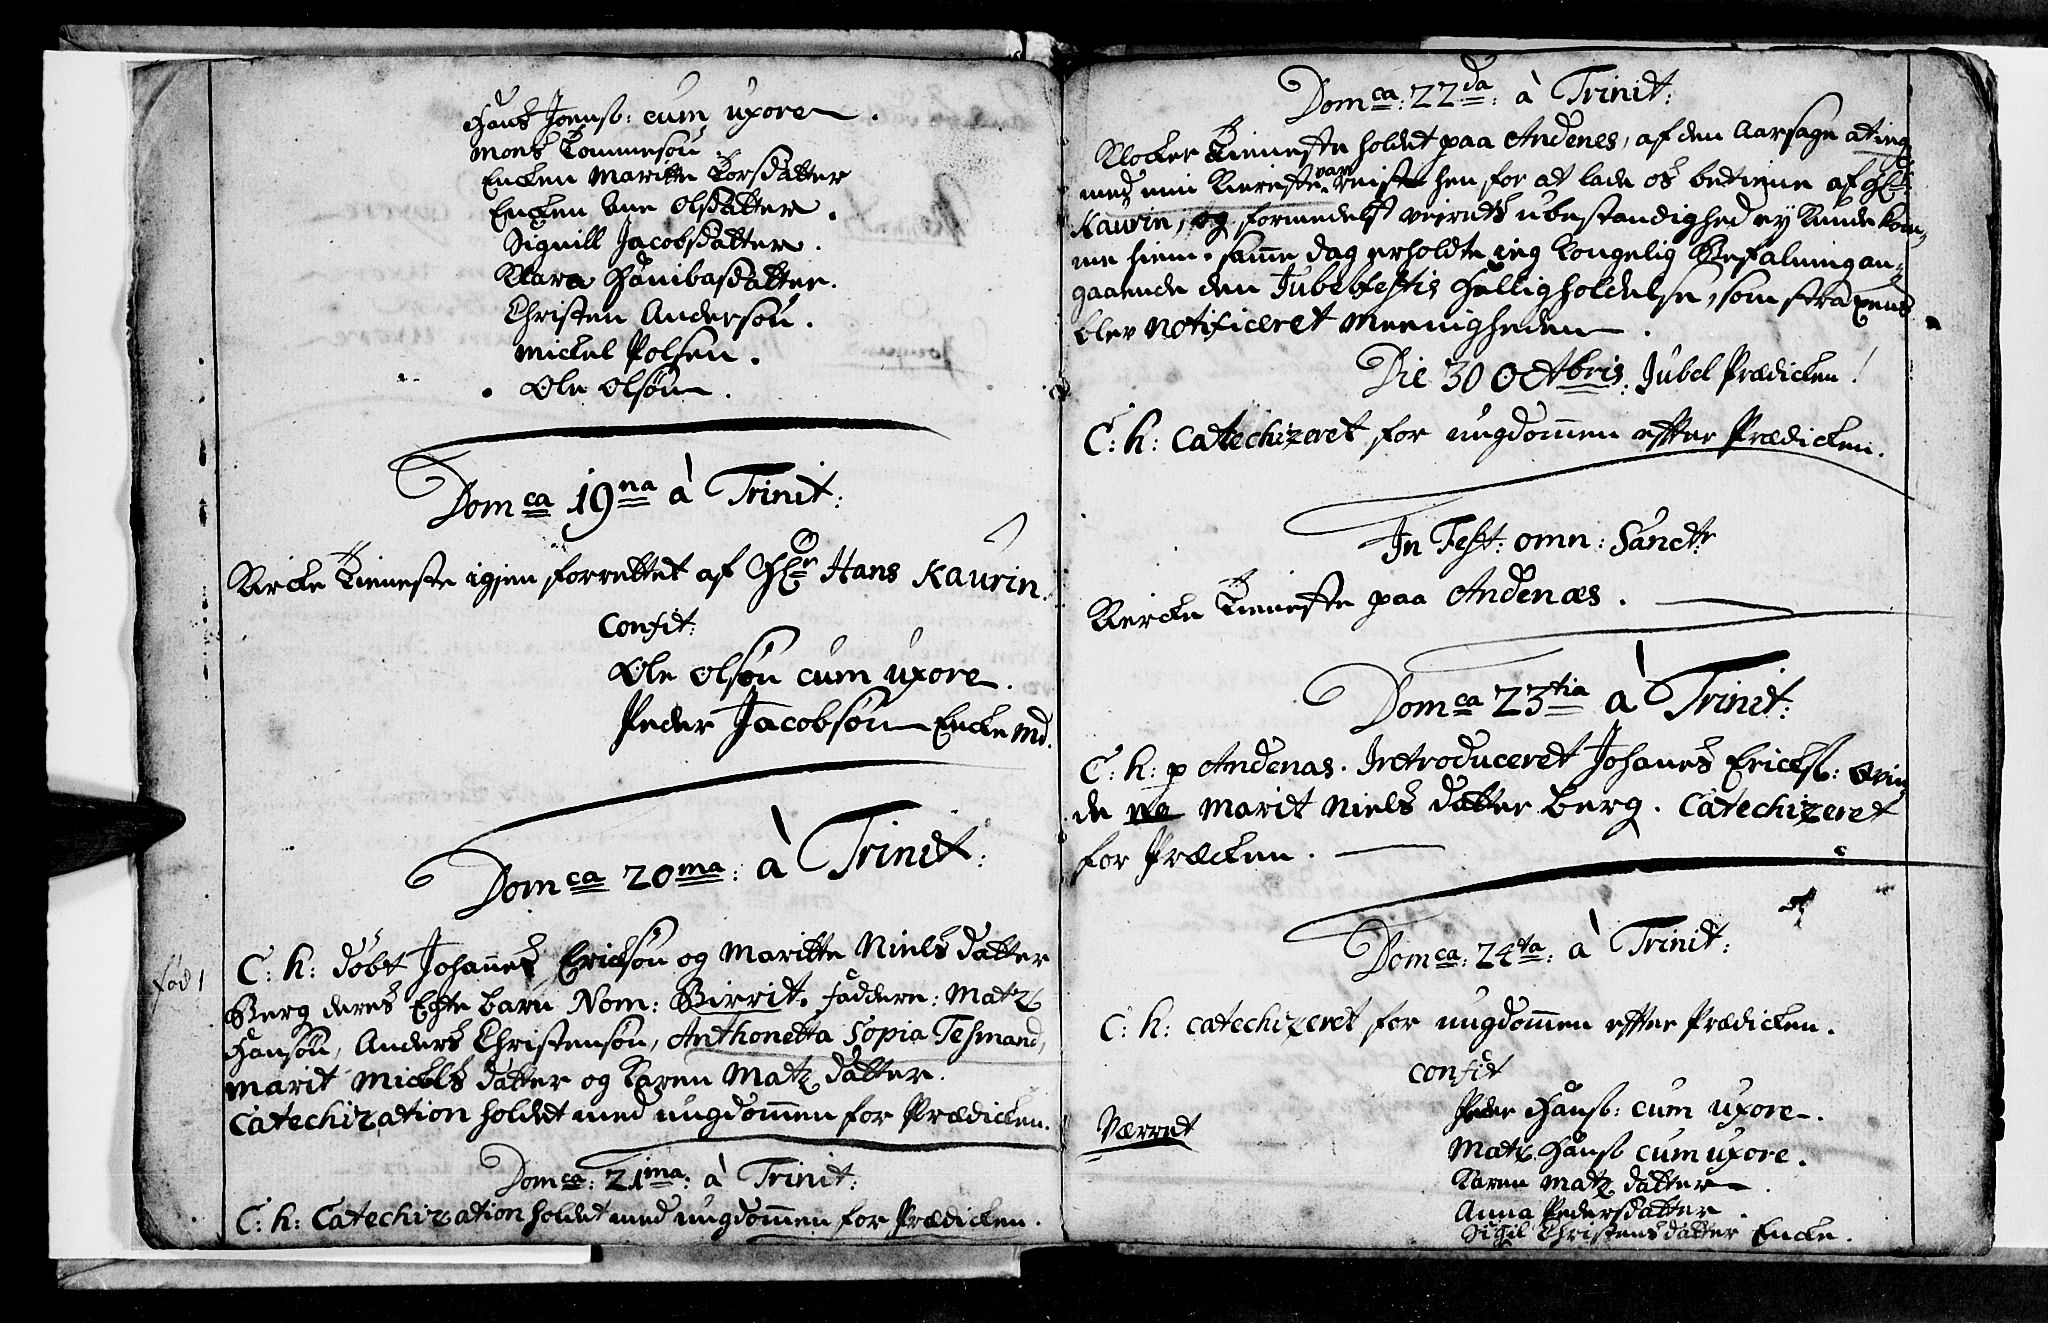 Hans Joensø: cum uxore.
Mons Tommesøn
Encken Maritte Torsdatter
Encken Ane Olsdatter.
Signill Jacobsdatter.
Klara Hanibasdatter.
Christen Andersøn.
Mickel Polsen.
Ole Olsøn.
Dom ca 19 na à Trinit:
Kircke Tieneste igjen forrettet af Hr Hans Kaurin.
Confit:
Ole Olsøn cum uxore.
Peder Jacobsøn Encke Md.
Dom ca 20 ma: à Trinit:
C: h: døbt Johannes Ericksøn og Maritte Niels datter
fød 1
Berg deres Egte barn Nom: Birrit. Faddere: Matz
Hansøn, Anders Christensøn, Anthonetta Sopia Tesmand,
Marit Mickels datter og Karen Matz datter.
Catechization holdet med ungdommen for Prædicken.
Dom ca: 21 ma: à Trinit:
C: h: Catechization holdet med ungdommen for Prædicken.
Dom ca: 22 da: à Trinit:
Klocker Tieneste holdet paa Andenes, af den Aarsage at ieg
med min Kiereste var reist hen for at lade os betiene af Hr:
Kaurin, og formedelst veirets ubestandighed ey kunde kom,
me hiem. samme dag erholdte ieg Kongelig Befalning an,
gaaende den Jubelfestis Helligholdelse, som straxens
blev notificeret Meenigheden.
Die 30 Octobris. Jubel Prædicken!
C: h: Catechizeret for ungdommen effter Prædicken.
In Fest: omn: Sanct:
Kircke Tieneste paa Andenæs.
Dom ca 23 tia à Trinit:
C: h: p Andenas. Introduceret Johanes Ericks: qvin,
de Marit Niels datter Berg. Catechizeret
for Præcken.
Dom ca: 24 ta: à Trinit:
C: h: catechizeret for ungdommen effter Prædicken.
Confit
Peder Hansø: cum uxore.
Værret
Matz Hansø cum uxore.
Karen Matz datter.
Anna Pedersdatter.
Sigil Christensdatter Encke.